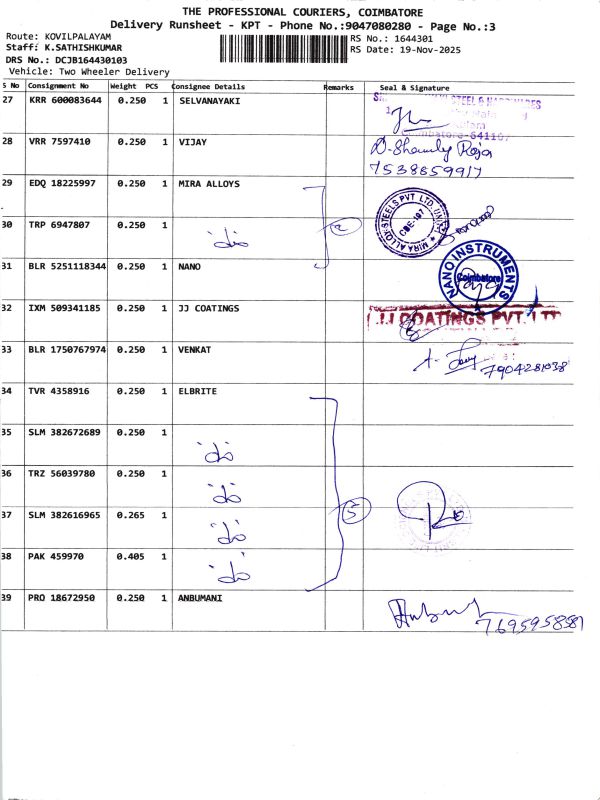 THE PROFESSIONAL COURIERS, COIMBATORE
Delivery Runsheet - KPT - Phone No.:9047080280 - Page No.:3
Route: KOVILPALAYAM
RS No.: 1644301
Staff: K.SATHISHKUMAR
RS Date: 19-Nov-2025
DRS No.: DCJB164430103
Vehicle: Two Wheeler Delivery
S No Consignment No Weight PCS Consignee Details Remarks Seal & Signature
27 KRR 600083644 0.250 1 SELVANAYAKI
Coimbatore-641107
28 VRR 7597410 0.250 1 VIJAY
7538859917
29 EDQ 18225997 0.250 1 MIRA ALLOYS
MIRA ALLOY STEELS PVT LTD, UNIT
CBE-107
30 TRP 6947807 0.250 1
2
31 BLR 5251118344 0.250 1 NANO
NANO INSTRUMENTS
Coimbatore
32 IXM 509341185 0.250 1 JJ COATINGS
JJ COATINGS PVT. LTD
33 BLR 1750767974 0.250 1 VENKAT
7904281038
34 TVR 4358916 0.250 1 ELBRITE
35 SLM 382672689 0.250 1
36 TRZ 56039780 0.250 1
37 SLM 382616965 0.265 1
5
38 PAK 459970 0.405 1
39 PRO 18672950 0.250 1 ANBUMANI
7695958587